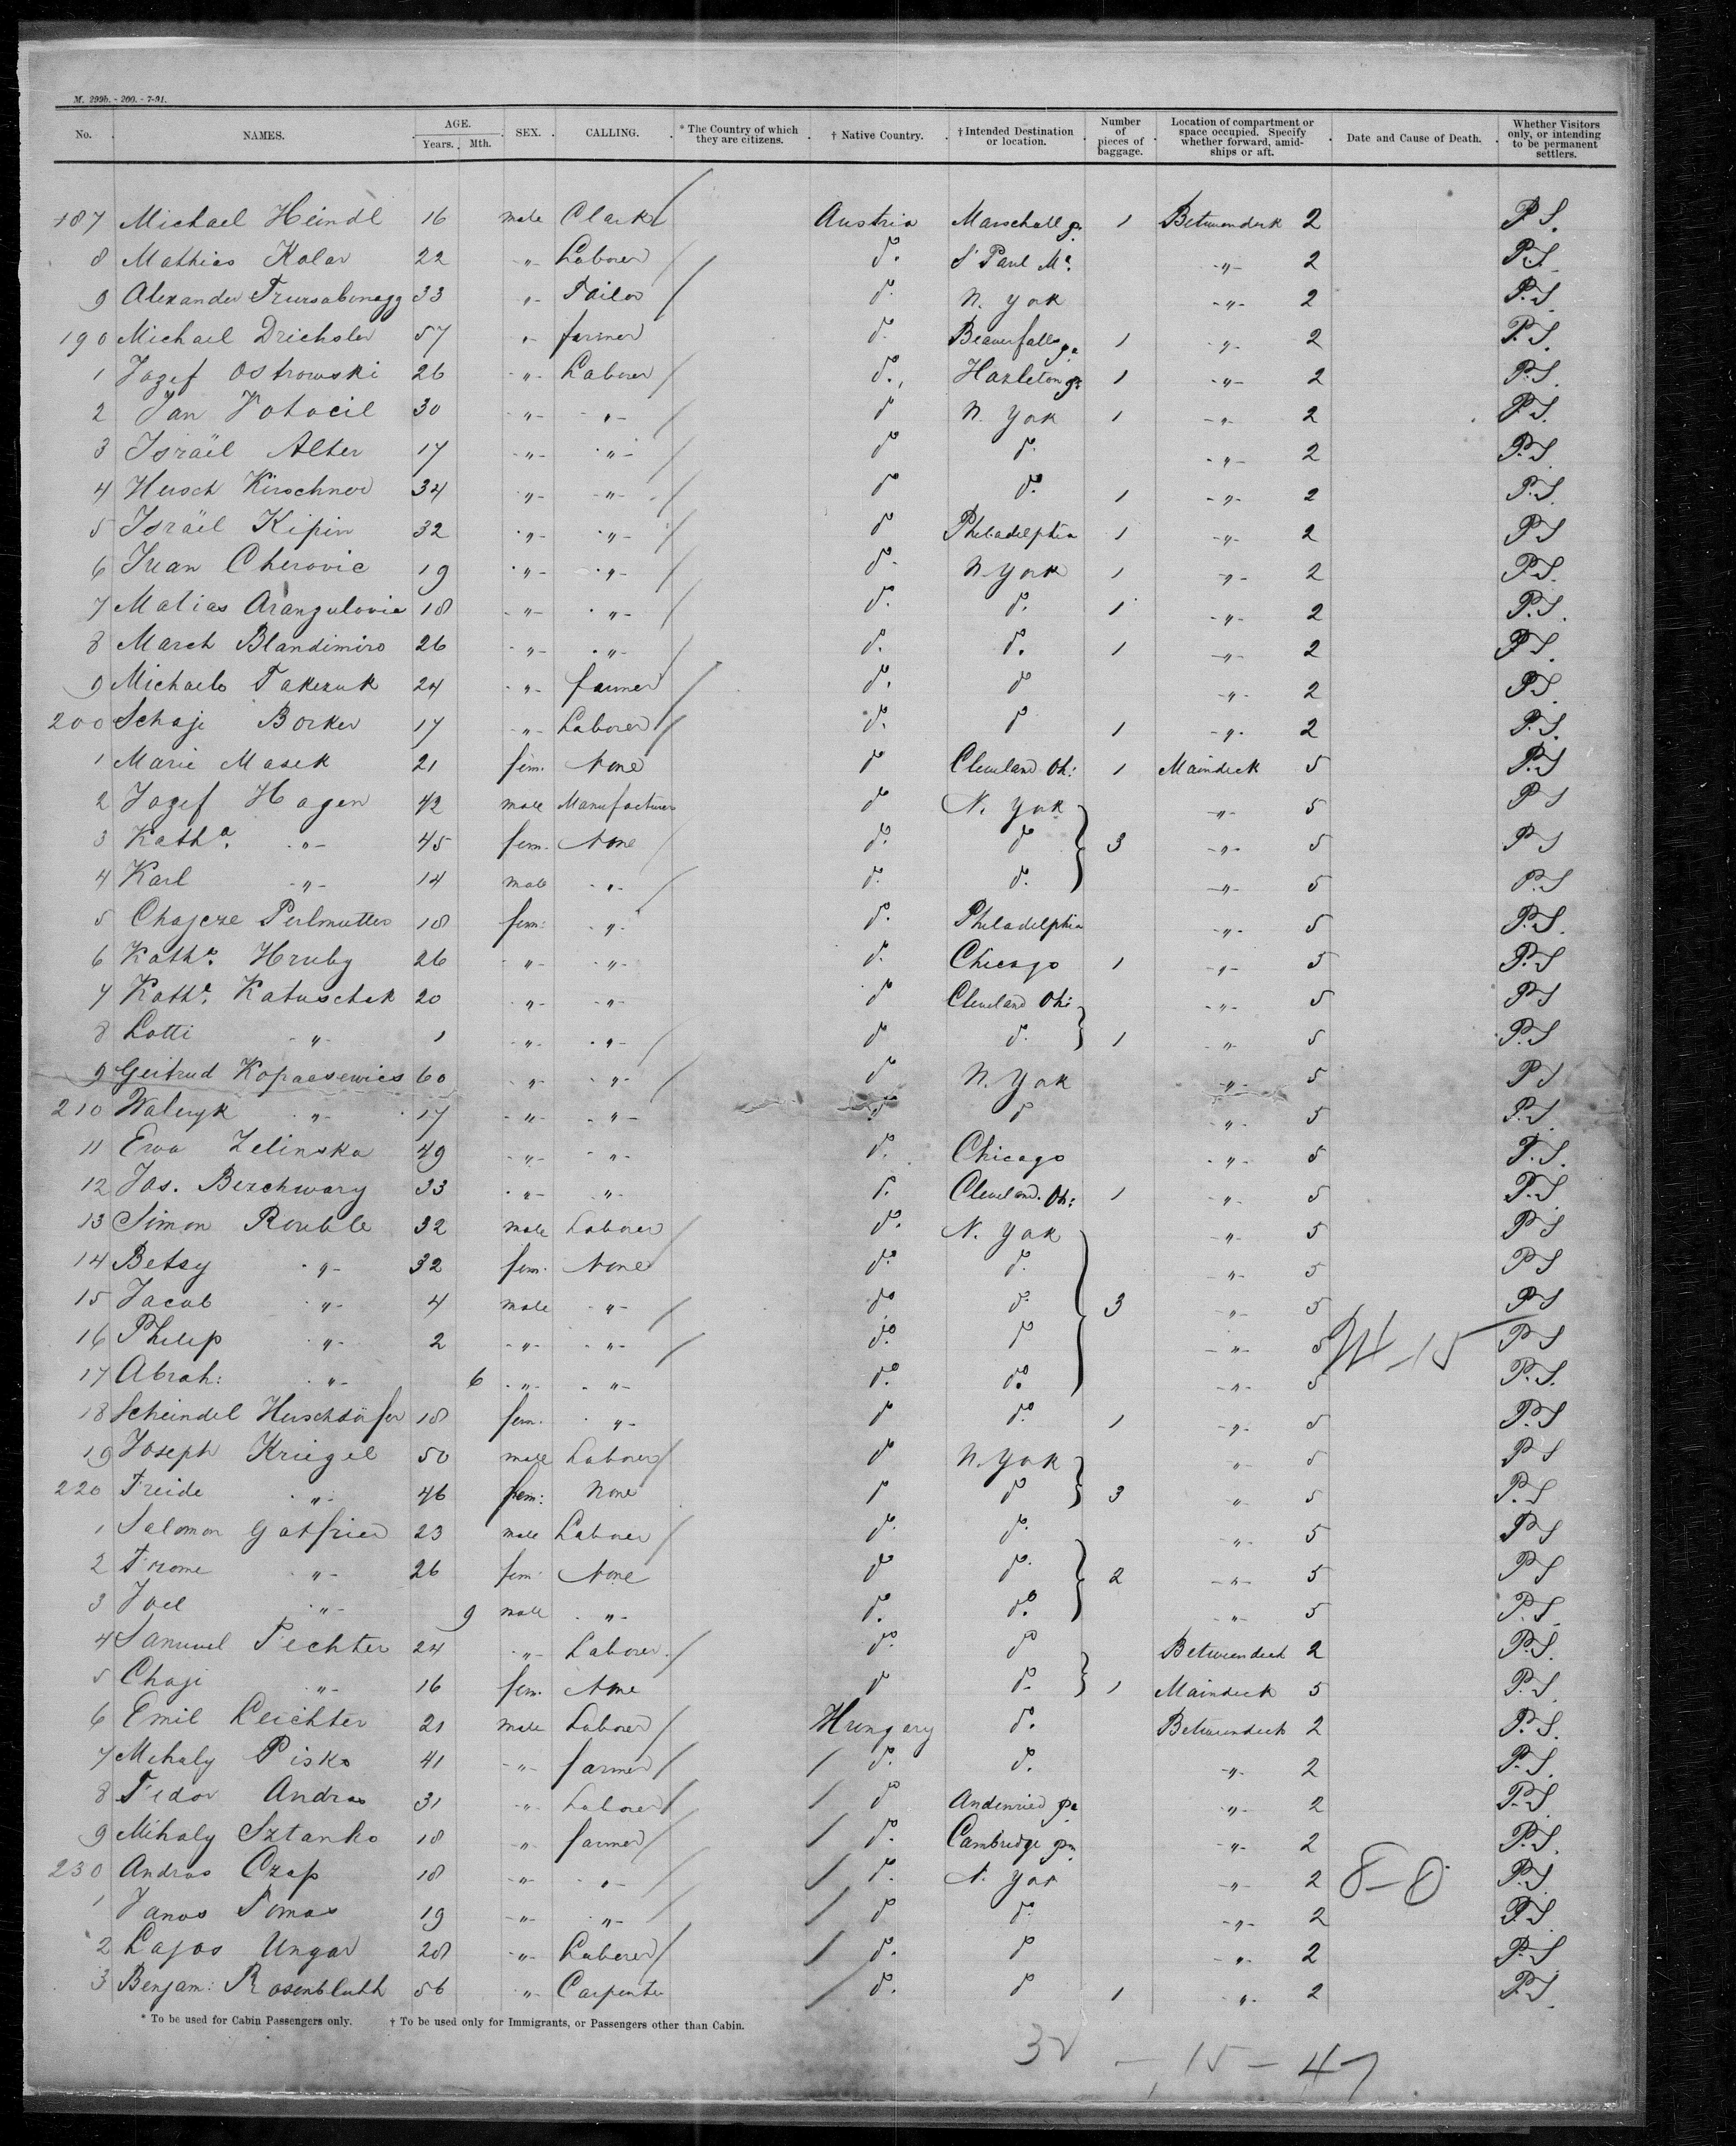 M. 299b. - 200. - 7-91.
No. NAMES. AGE. Years. Mth. SEX. CALLING. * The Country of which they are citizens. † Native Country. † Intended Destination or location. Number of pieces of baggage. Location of compartment or space occupied. Specify whether forward, amid-ships or aft. Date and Cause of Death. Whether Visitors only, or intending to be permanent settlers.
187 Michael Heindl 16 male Clark Austria Marschall pa 1 Betweendeck 2 P.S.
8 Mathias Kolar 22 -"- Laborer do. St Paul Ma. -"- 2 P.S.
9 Alexander 33 -"- Tailor do. N. York -"- 2 P.S.
190 Michael Drichsler 57 -"- farmer do. Beaverfalls pa 1 -"- 2 P.S.
1 Jozef Ostrowski 26 -"- Laborer do. Hazleton pa 1 -"- 2 P.S.
2 Jan Votocil 30 -"- -"- do N. York 1 -"- 2 P.S.
3 Israël Alter 17 -"- -"- do do. -"- 2 P.S.
4 Hersch Kirschner 34 -"- -"- do do. 1 -"- 2 P.S.
5 Israël Kipin 32 -"- -"- do Philadelphia 1 -"- 2 P.S
6 Ivan Cherovic 19 -"- -"- do. N. York 1 -"- 2 P.S.
7 Matias Arangulovic 18 -"- -"- do. do. 1 -"- 2 P.S.
8 March Blandimiro 26 -"- -"- do. do. 1 -"- 2 P.S.
9 Michaelo Takezuk 24 -"- farmer do. do -"- 2 P.S.
200 Schaje Borker 17 -"- Laborer do. do 1 -"- 2 P.S.
1 Marie Masek 21 fem. None do Cleveland Oh: 1 Maindeck 5 P.S
2 Jozef Hagen 42 male Manufacturer do N. York -"- 5 P S
3 Katha. -"- 45 fem. None do. do 3 -"- 5 P S
4 Karl -"- 14 male -"- do. do. -"- 5 P.S
5 Chajcze Perlmutter 18 fem: -"- do. Philadelphia -"- 5 P.S.
6 Katha. Hruby 26 -"- -"- do. Chicago 1 -"- 5 P.S
7 Katha. Katuschek 20 -"- -"- do Cleveland Oh: -"- 5 P S
8 Lotti -"- 1 -"- -"- do do. 1 -"- 5 P.S
9 Geitrud Kopaesewics 60 -"- -"- do N. York -"- 5 P S
210 Waleryk -"- 17 -"- -"- do do -"- 5 P.S.
11 Ewa Zelinska 49 -"- -"- do. Chicago -"- 5 P.S.
12 Jos. Bezchwary 33 -"- -"- do. Cleveland. Oh: 1 -"- 5 P.S.
13 Simon Rouble 32 male Laborer do. N. York -"- 5 P S
14 Betsy -"- 32 fem. None do. do. -"- 5 P S
15 Jacob -"- 4 male -"- do do. 3 -"- 5 P S
16 Philip -"- 2 -"- -"- do. do -"- 5 P S
17 Abrah: -"- 6 -"- -"- do. do. -"- 5 P.S.
18 Scheindel Herschdörfer 18 fem. -"- do do. 1 -"- 5 P.S
19 Joseph Kriegel 50 male Laborer do N. York -"- 5 P S
220 Freide -"- 46 fem: None do do 3 -"- 5 P.S
1 Salomon Gotfried 23 male Laborer do. do. -"- 5 P S
2 Frome -"- 26 fem. None do do. 2 -"- 5 P S
3 Joel -"- 9 male -"- do. do. -"- 5 P.S.
4 Samuel Pechter 24 -"- Laborer do. do Betweendeck 2 P.S.
5 Chaje -"- 16 fem. None do do. 1 Maindeck 5 P.S.
6 Emil Leichter 21 male Laborer Hungary do. Betweendeck 2 P.S.
7 Mihaly Pisko 41 -"- farmer do. do. -"- 2 P.S.
8 Fedor Andras 31 -"- Laborer do Andenried pa -"- 2 P.S
9 Mihaly Sztanko 18 -"- farmer do. Cambridge pa -"- 2 P.S.
230 Andras Czap 18 -"- -"- do. N. York -"- 2 P.S.
1 Janos Tomas 19 -"- -"- do do -"- 2 P.S.
2 Lajos Ungar 28 -"- Laborer do. do -"- 2 P.S
3 Benjam: Rosenbluth 56 -"- Carpenter do. do 1 -"- 2 P.S.
8-0
* To be used for Cabin Passengers only. † To be used only for Immigrants, or Passengers other than Cabin.
32 - 15 - 47